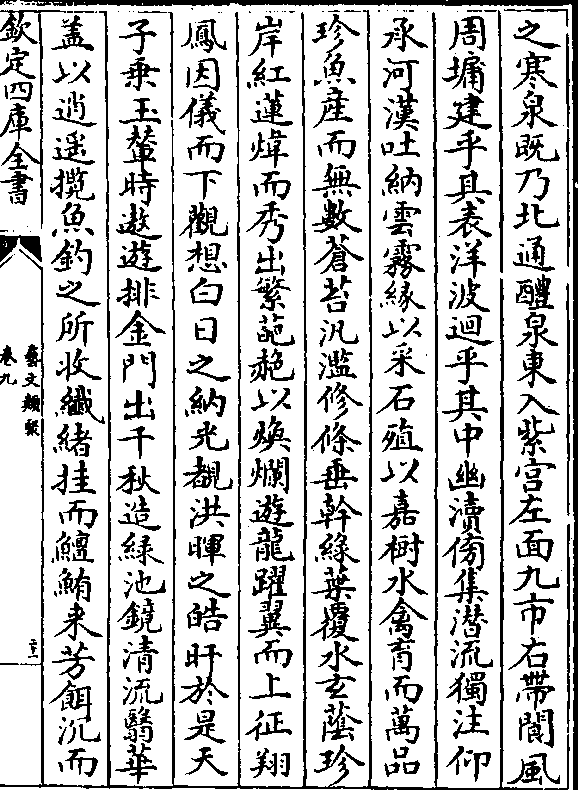 之寒泉既乃北通醴泉東入紫宮左面九市右帶閬風
周墉建乎其表洋波迴乎其中幽瀆傍集潛流獨注仰
承河漢吐納雲霧緣以采石殖以嘉樹水禽育而萬品
珍魚產而無數蒼苔汎濫修條垂幹綠葉覆水玄蔭珍
岸紅蓮煒而秀出繁葩赩以煥爛遊龍躍翼而上征翔
鳳因儀而下觀想白日之納光覩洪暉之皓旰於是天
子乗玉輦時遨遊排金門出千秋造綠池鏡清流翳華
盖以逍遥攬魚釣之所收纖緒挂而鱣鮪來芳餌沉而
欽定四庫全書
藝文類聚
卷九